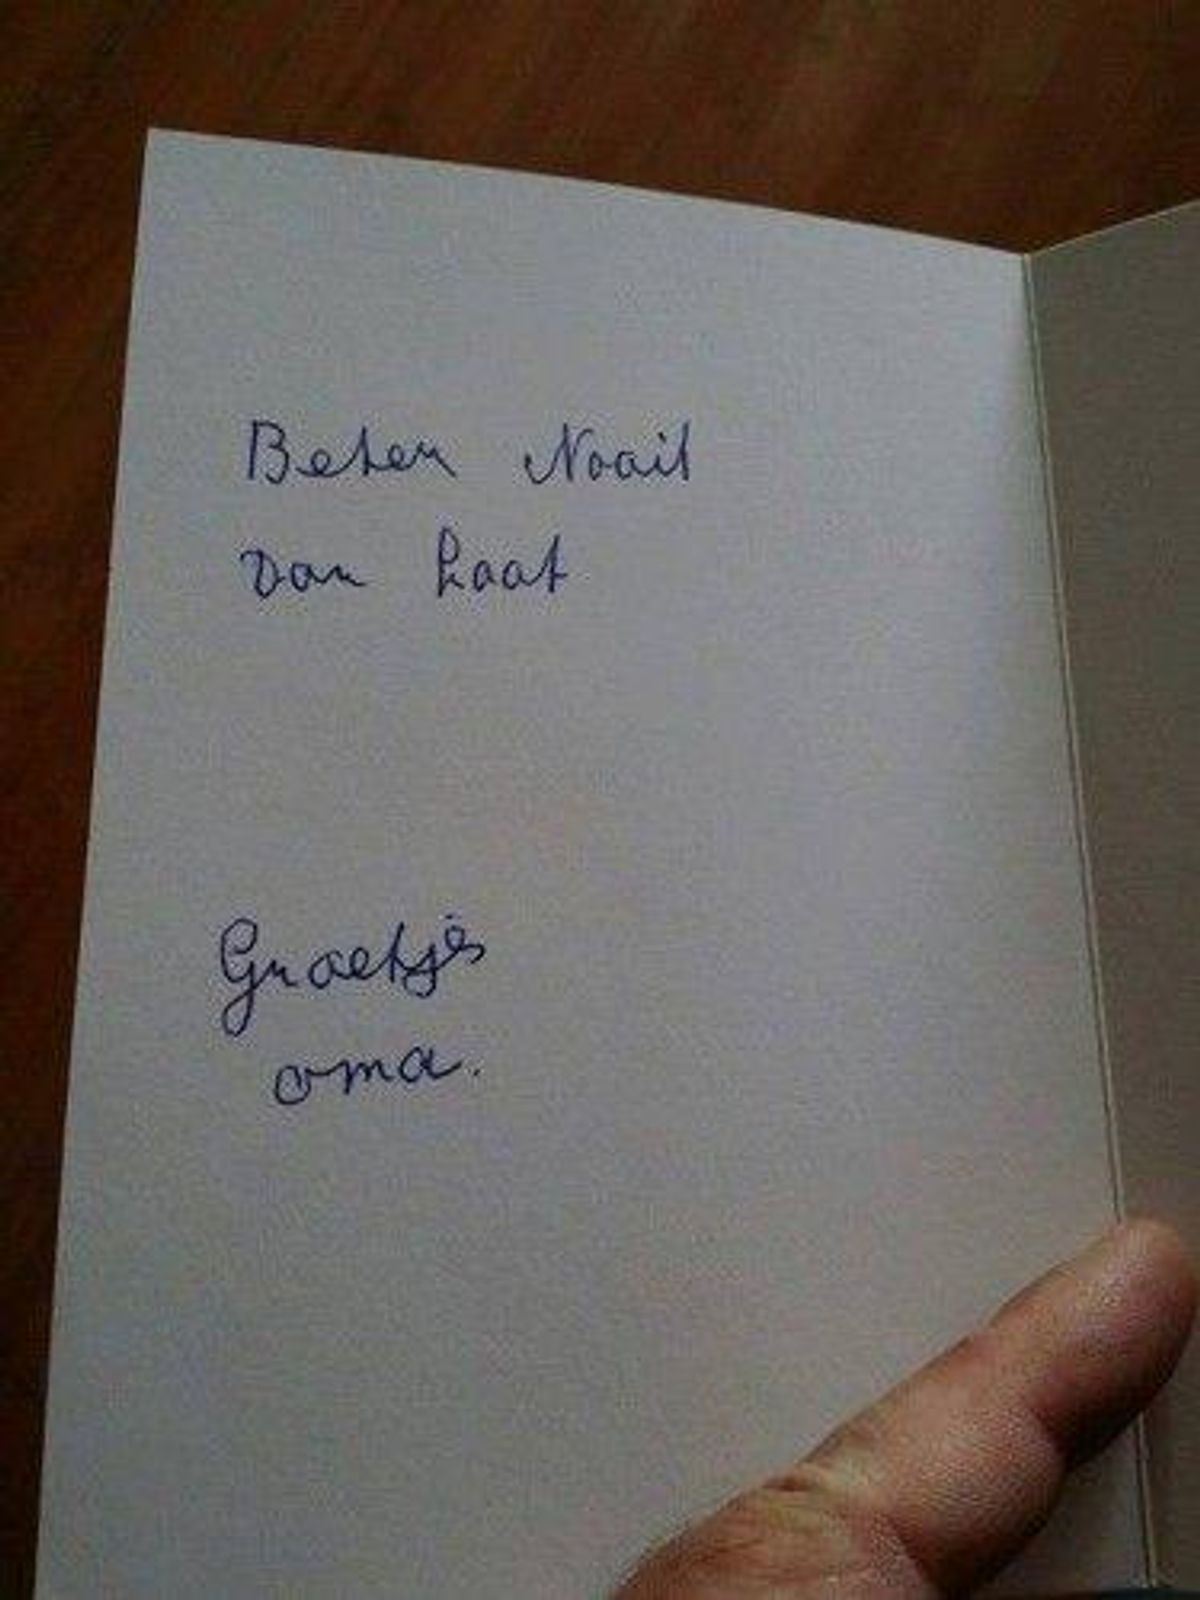 Beter Nooit
Dan Laat
Groetjes
oma.